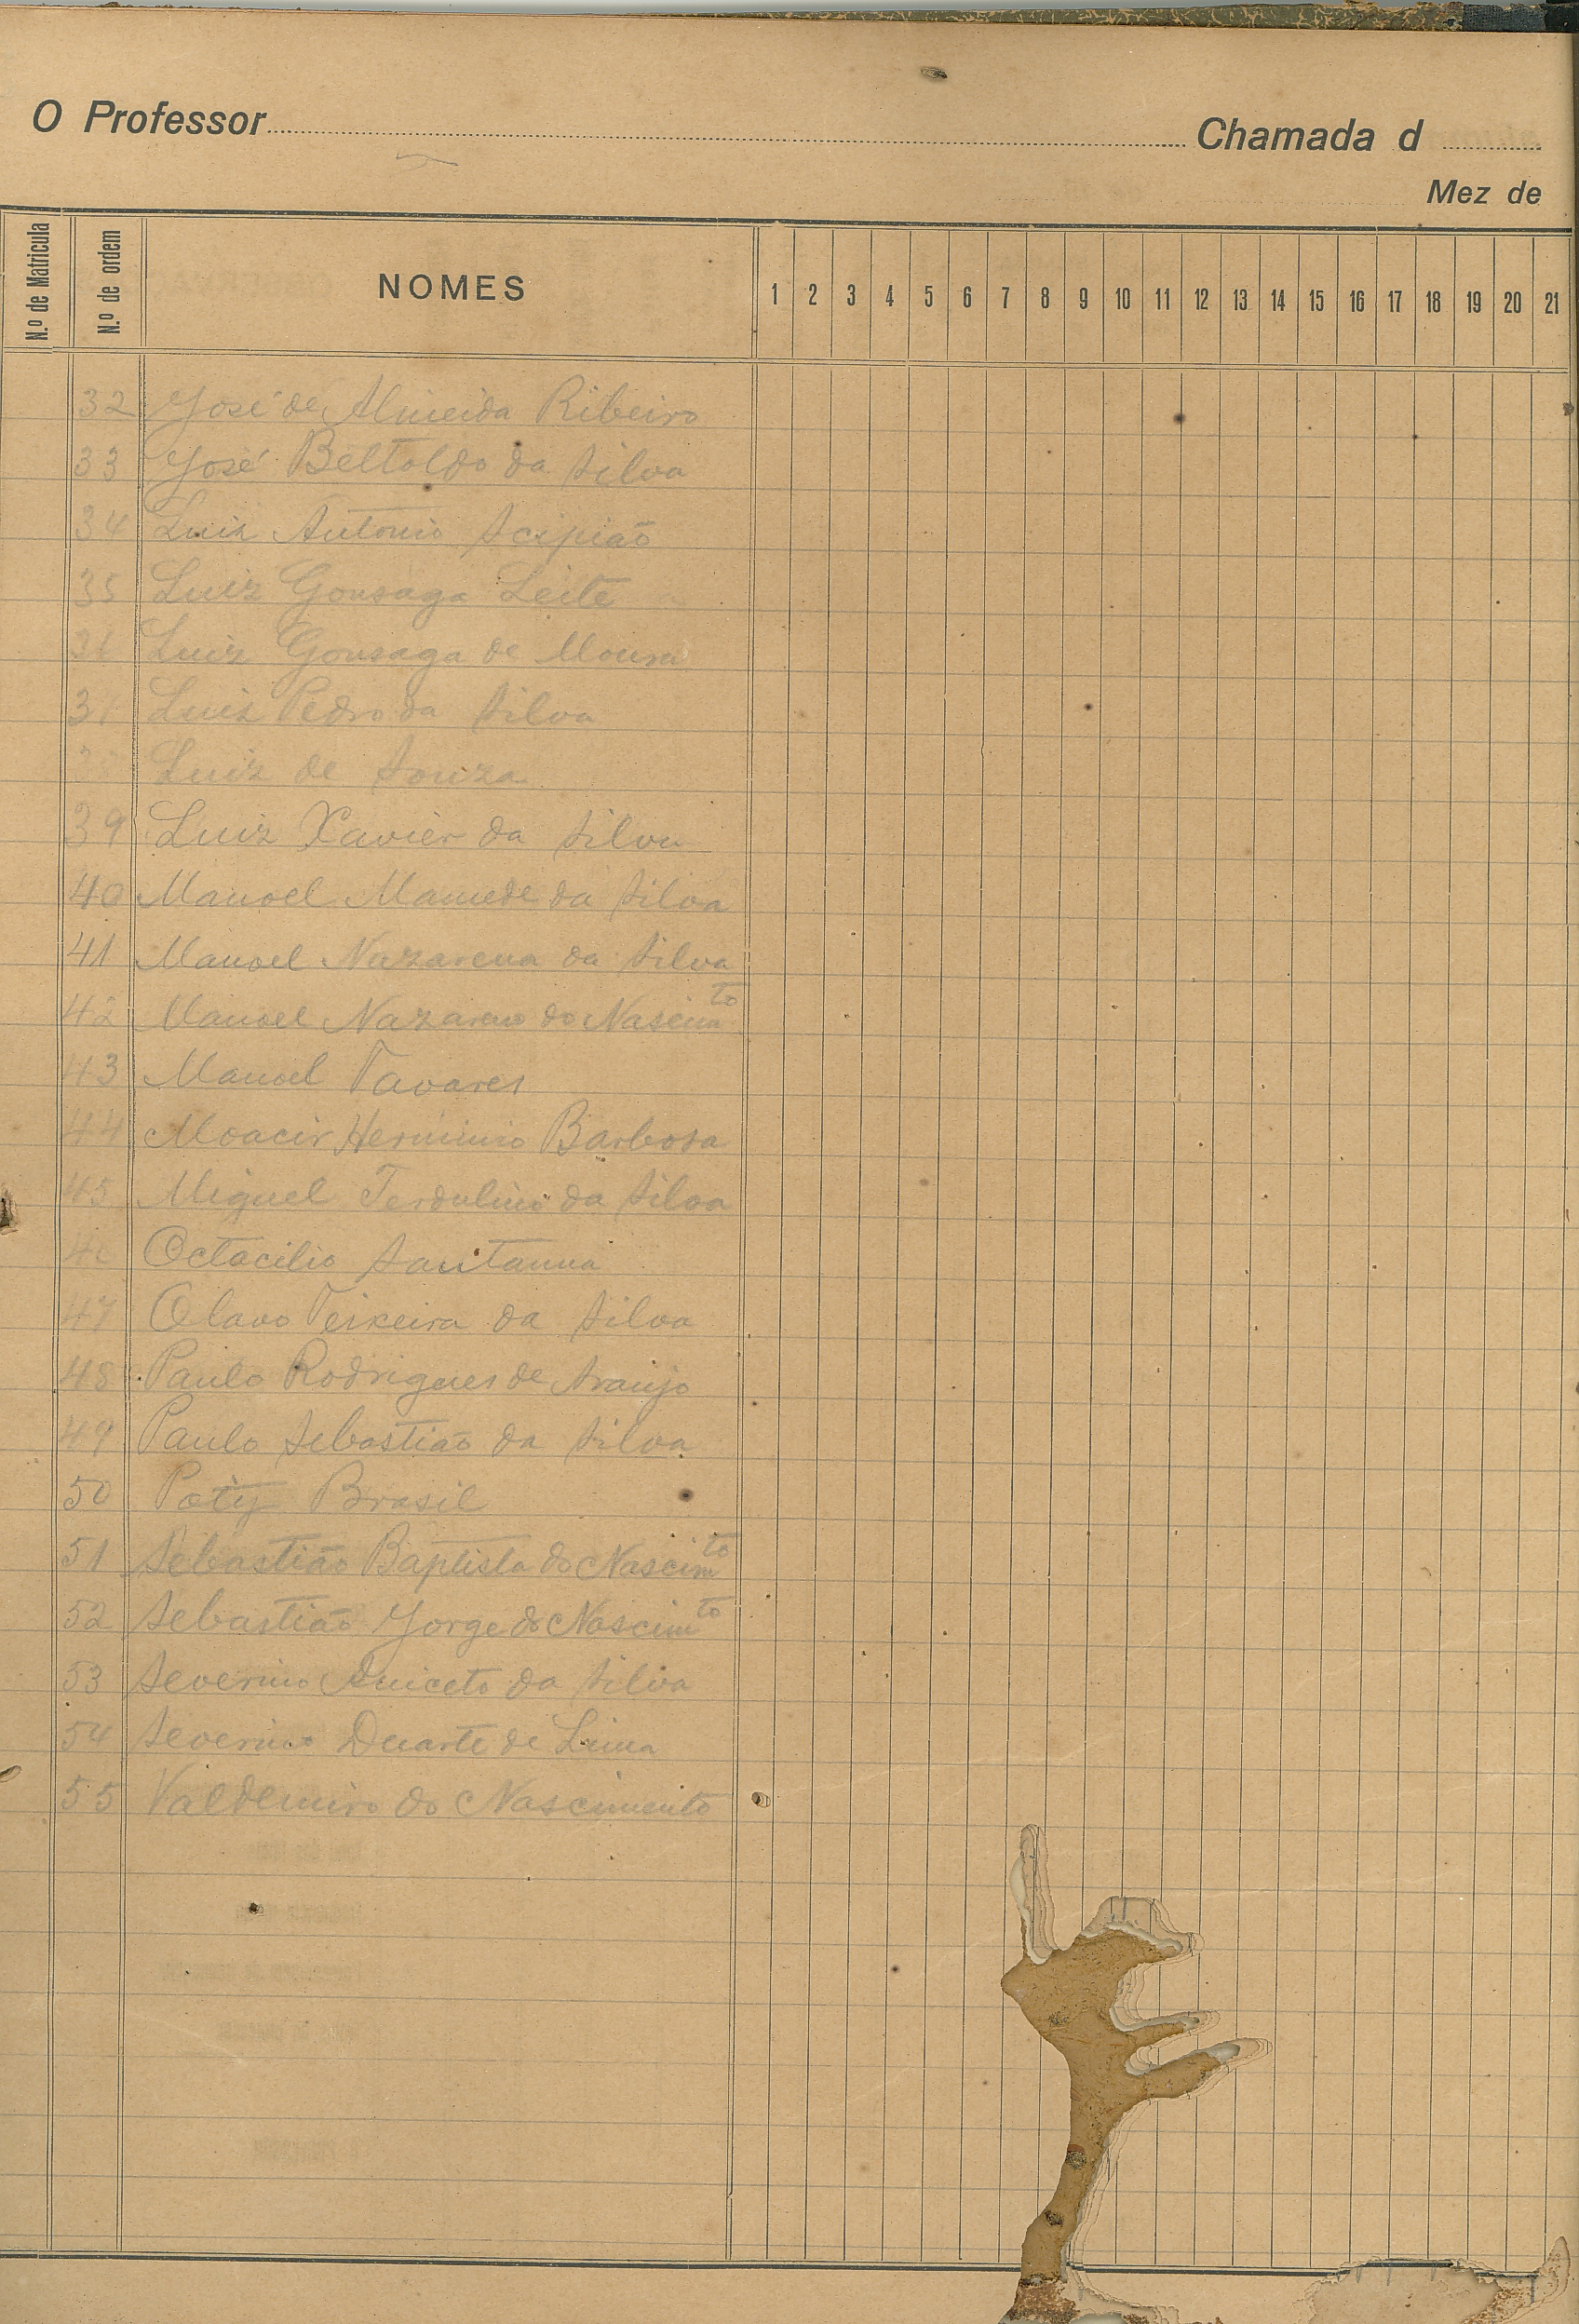 O Professor Chamada d
Mez de
N.º de Matricula N.º de ordem NOMES 1 2 3 4 5 6 7 8 9 10 11 12 13 14 15 16 17 18 19 20 21
32 José de Almeida Ribeiro
33 José Beltoldo da Silva
34 Luiz Antonio Scipião
35 Luiz Gonsaga Leite
36 Luiz Gonsaga de Moura
37 Luiz Pedro da Silva
Luiz de Souza
39 Luiz Xavier da Silva
40 Manoel Mamede da Silva
41 Manoel Nazarena da Silva
42 Manoel Nazareno do Nascimto
43 Manoel Tavares
44 Moacir Herminio Barbosa
45 Miguel Terdulino da Silva
46 Octacilio Santanna
47 Olavo Teixeira da Silva
48 Paulo Rodrigues de Araujo
49 Paulo Sebastião da Silva
50 Poty Brasil
51 Sebastião Baptista do Nascimto
52 Sebastião Jorge do Nascimto
53 Severino Aniceto da Silva
54 Severino Duarte de Lima
55 Valdemiro do Nascimento